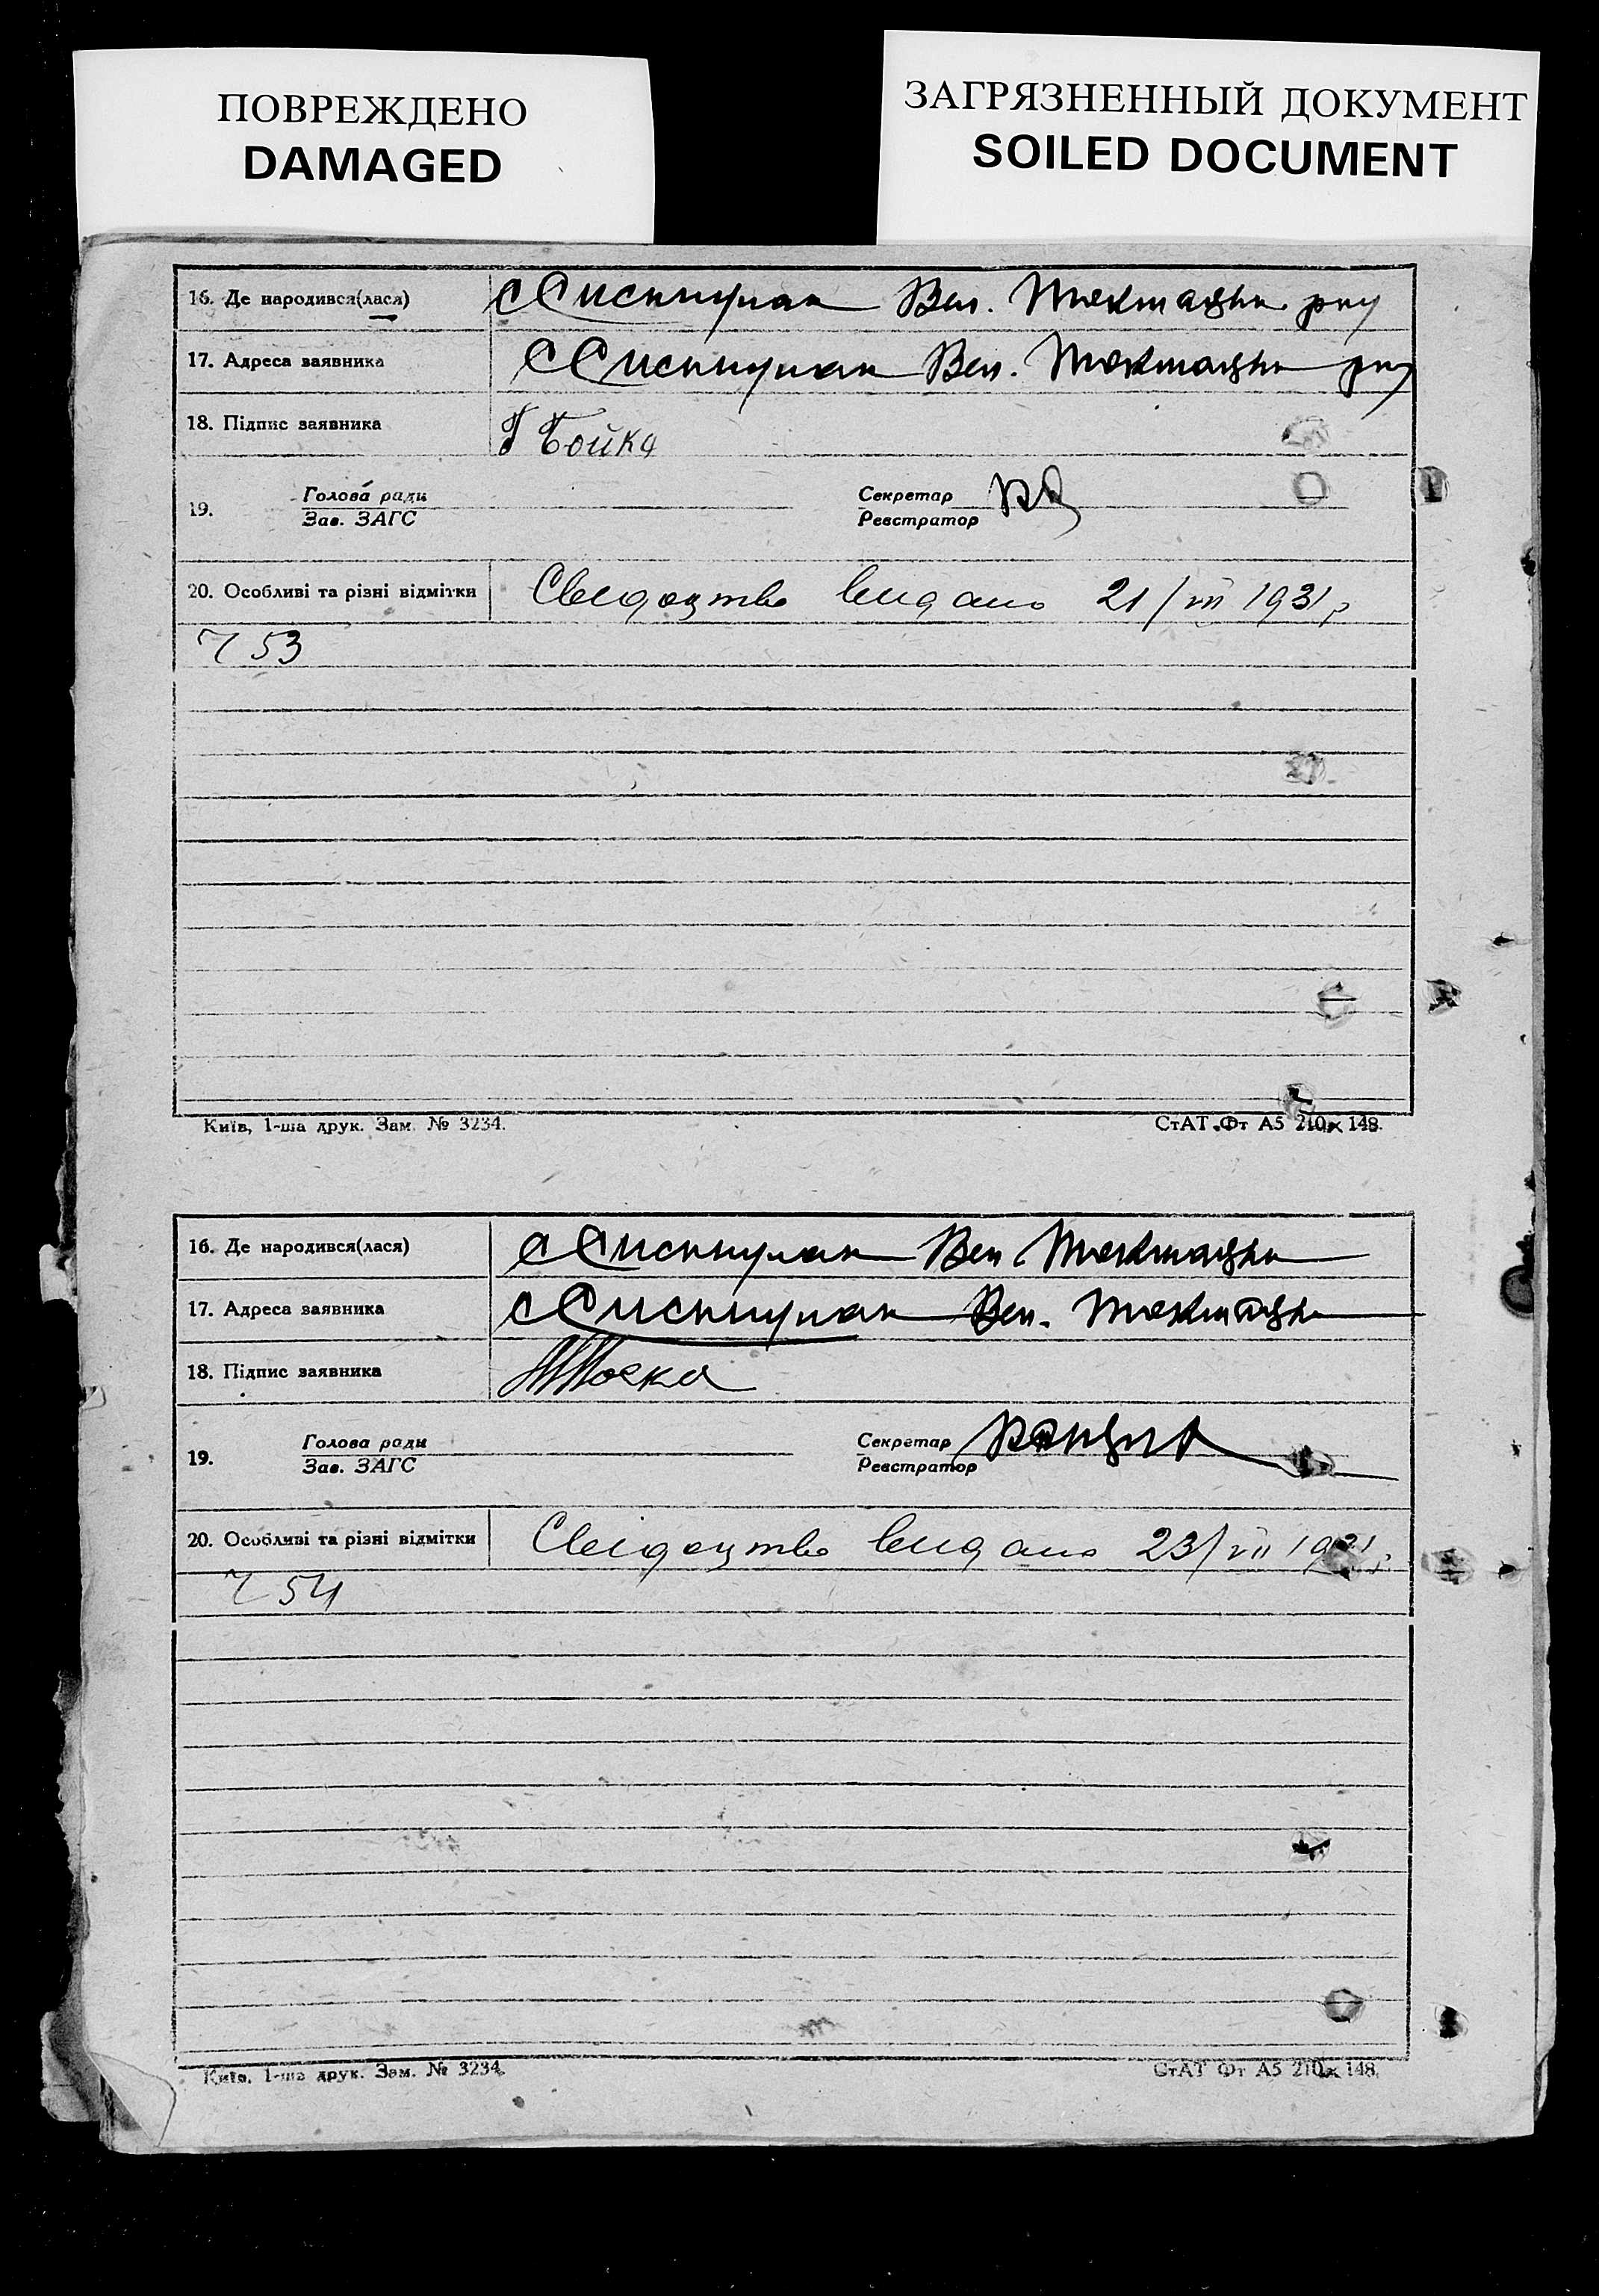 ПОВРЕЖДЕНО
DAMAGED
ЗАГРЯЗНЕННЫЙ ДОКУМЕНТ
SOILED DOCUMENT
16. Де народився(лася) с Вел. Токмацьк. р-ну
17. Адреса заявника с Вел. Токмацьк р-ну
18. Підпис заявника Бойко
19. Голова ради Секретар
Зав. ЗАГС Реєстратор
20. Особливі та різні відмітки Свидоцтво видано 21/VII 1931 р
Ч 53
Київ, 1-ша друк. Зам. № 3234. СтАТ Фт А5 210 x 148.
16. Де народився(лася) с Вел Токмацьк
17. Адреса заявника с Вел. Токмацьк
18. Підпис заявника
19. Голова ради Секретар
Зав. ЗАГС Реєстратор
20. Особливі та різні відмітки Свідоцтво видано 23/VII 1931 р
Ч 54
Київ, 1-ша друк. Зам. № 3234. СтАТ Фт А5 210 x 148.